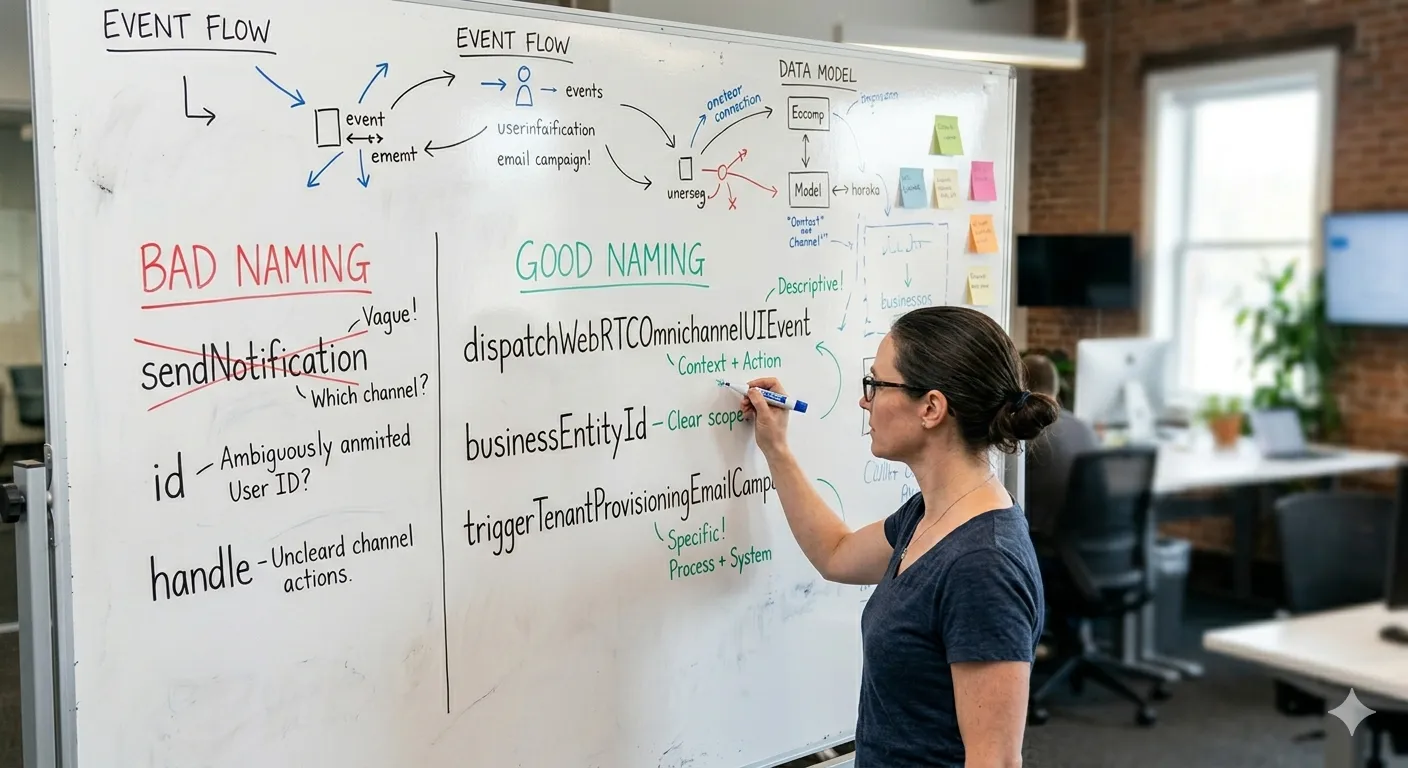 EVENT FLOW
EVENT FLOW
DATA MODEL
event
ement
events
userinfaification
email campaign!
connection
unerseg
Eocomp
Model
horaka
Channel
businessos
BAD NAMING
Vague!
sendNotification
Which channel?
id
Ambiguously anmirted
User ID?
handle
Uncleard channel
actions.
GOOD NAMING
Descriptive!
dispatchWebRTCOmnichannelUIEvent
Context + Action
businessEntityId
Clear scope
triggerTenantProvisioningEmailCamp
Specific!
Process + System